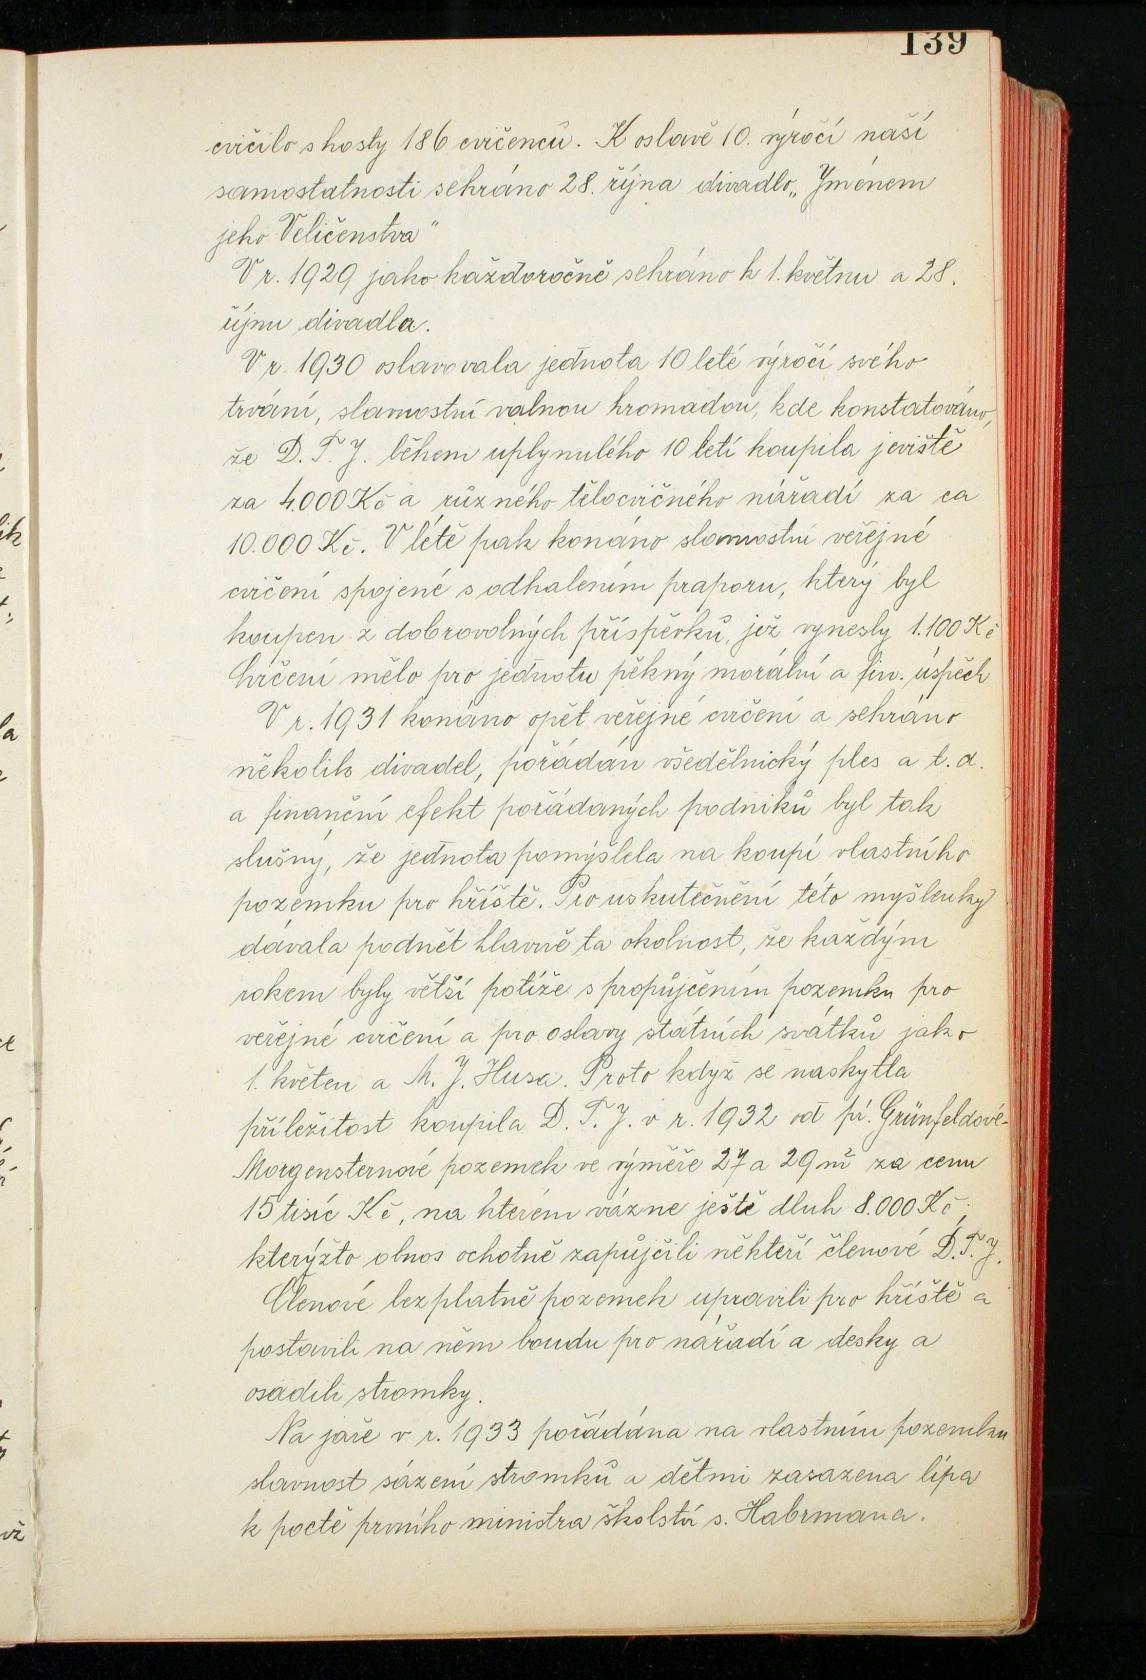 139
cvičilo s hosty 186 cvičenců. K oslavě 10. výročí naší
samostatnosti sehráno 28. října divadlo „Jménem
jeho Veličenstva"
V r. 1929 jako každoročně sehráno k 1. květnu a 28.
říjnu divadla.
V r. 1930 oslavovala jednota 10 leté výročí svého
trvání, slavnostní valnou hromadou, kde konstatováno,
že D. T. J. během uplynulého 10 letí koupila jeviště
za 4.000 Kč a různého tělocvičného nářadí za ca
10.000 Kč. V létě pak konáno slavnostní veřejné
cvičení spojené s odhalením praporu, který byl
koupen z dobrovolných příspěvků, jež vynesly 1.100 Kč
Cvičení mělo pro jednotu pěkný morální a fin. úspěch
V r. 1931 konáno opět veřejné cvičení a sehráno
několik divadel, pořádán všedělnický ples a t. d.
a finanční efekt pořádaných podniků byl tak
slušný, že jednota pomýšlela na koupi vlastního
pozemku pro hřiště. Pro uskutečnění této myšlenky
dávala podnět hlavně ta okolnost, že každým
rokem byly větší potíže s propůjčením pozemku pro
veřejné cvičení a pro oslavy státních svátků jako
1. květen a M. J. Husa. Proto když se naskytla
příležitost koupila D. T. J. v r. 1932 od pí. Grünfeldové-
Morgensternové pozemek ve výměře 27 a 29 m² za cenu
15 tisíc Kč, na kterém vázne ještě dluh 8.000 Kč,
kterýžto obnos ochotně zapůjčili někteří členové D. T. J.
Členové bezplatně pozemek upravili pro hřiště a
postavili na něm boudu pro nářadí a desky a
osadili stromky.
Na jaře v r. 1933 pořádána na vlastním pozemku
slavnost sázení stromků a dětmi zasazena lípa
k poctě prvního ministra školství s. Habrmana.